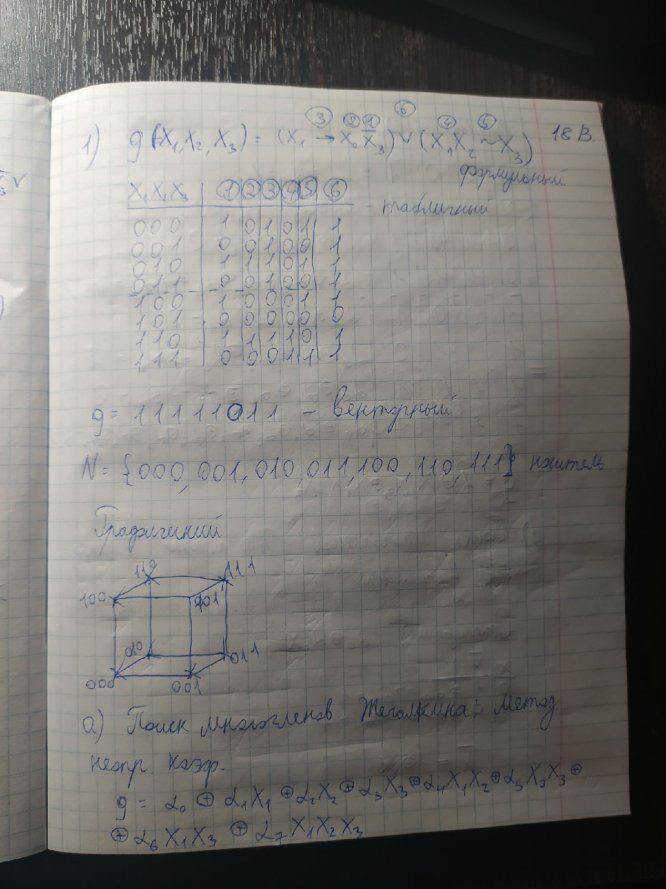 18 В.
1) g(X₁,X₂,X₃) = (X₁ → X₂X̄₃) ∨ (X₁X₂ ~ X₃)
③ ② ① ⑥ ④
формульный
X₁X₂X₃ ① ② ③ ④ ⑤ ⑥ табличный
000 1 0 1 0 1 1
001 0 0 1 0 0 1
010 1 1 1 0 1 1
011 0 0 1 0 0 1
100 1 0 0 0 1 1
101 0 0 0 0 0 0
110 1 1 1 1 0 1
111 0 0 0 1 1 1
g = 11111011 – векторный
N = {000, 001, 010, 011, 100, 110, 111} носитель
Графический
110 111
100 101
010 011
000 001
а) Поиск многочленов Жегалкина: Метод
неопр. коэф.
g = α₀ ⊕ α₁X₁ ⊕ α₂X₂ ⊕ α₃X₃ ⊕ α₄X₁X₂ ⊕ α₅X₂X₃ ⊕
⊕ α₆X₁X₃ ⊕ α₇X₁X₂X₃